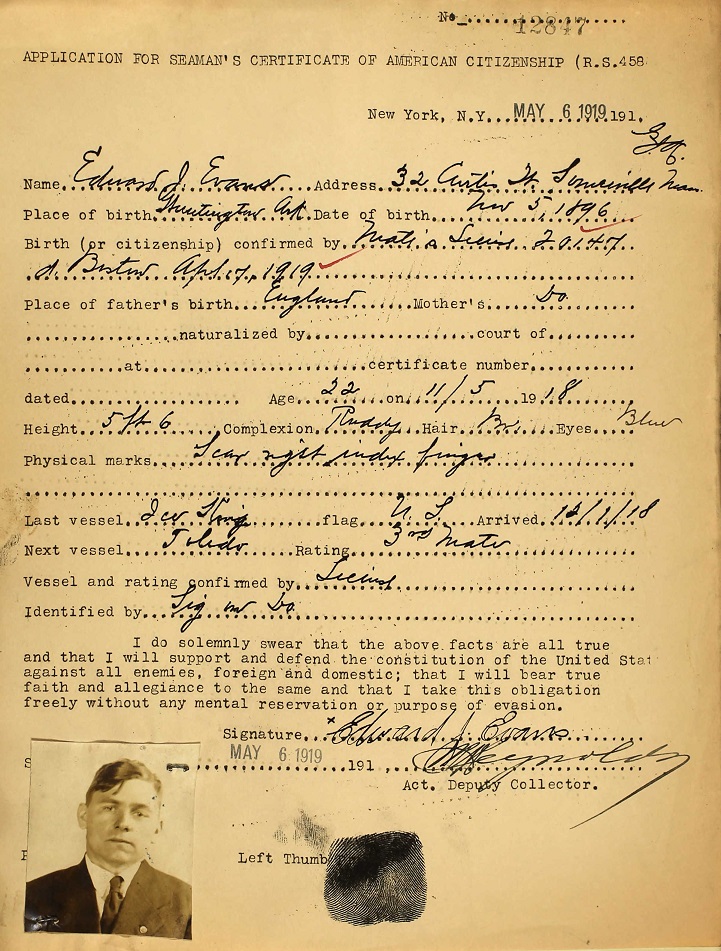 No. 12847
APPLICATION FOR SEAMAN'S CERTIFICATE OF AMERICAN CITIZENSHIP (R.S.458
New York, N.Y. MAY 6 1919 191.
Name Edward J. Evans Address 32 Curtis St Somerville Mass.
Place of birth Huntington Ark Date of birth Nov 5, 1896
Birth (or citizenship) confirmed by Mate's License 20147
d. Boston Apl. 17, 1919
Place of father's birth England Mother's Do
naturalized by court of
at certificate number
dated Age 22 on 11/5 1918
Height 5 ft 6 Complexion Ruddy Hair Br. Eyes Blue
Physical marks Scar right index finger
Last vessel Ice King flag U. S. Arrived 12/1/18
Next vessel Toledo Rating 3rd Mate
Vessel and rating confirmed by License
Identified by Sig on Do
I do solemnly swear that the above facts are all true
and that I will support and defend the constitution of the United Stat
against all enemies, foreign and domestic; that I will bear true
faith and allegiance to the same and that I take this obligation
freely without any mental reservation or purpose of evasion.
Signature x Edward J. Evans
S MAY 6 1919 191 Reynolds
Act. Deputy Collector.
Left Thumb